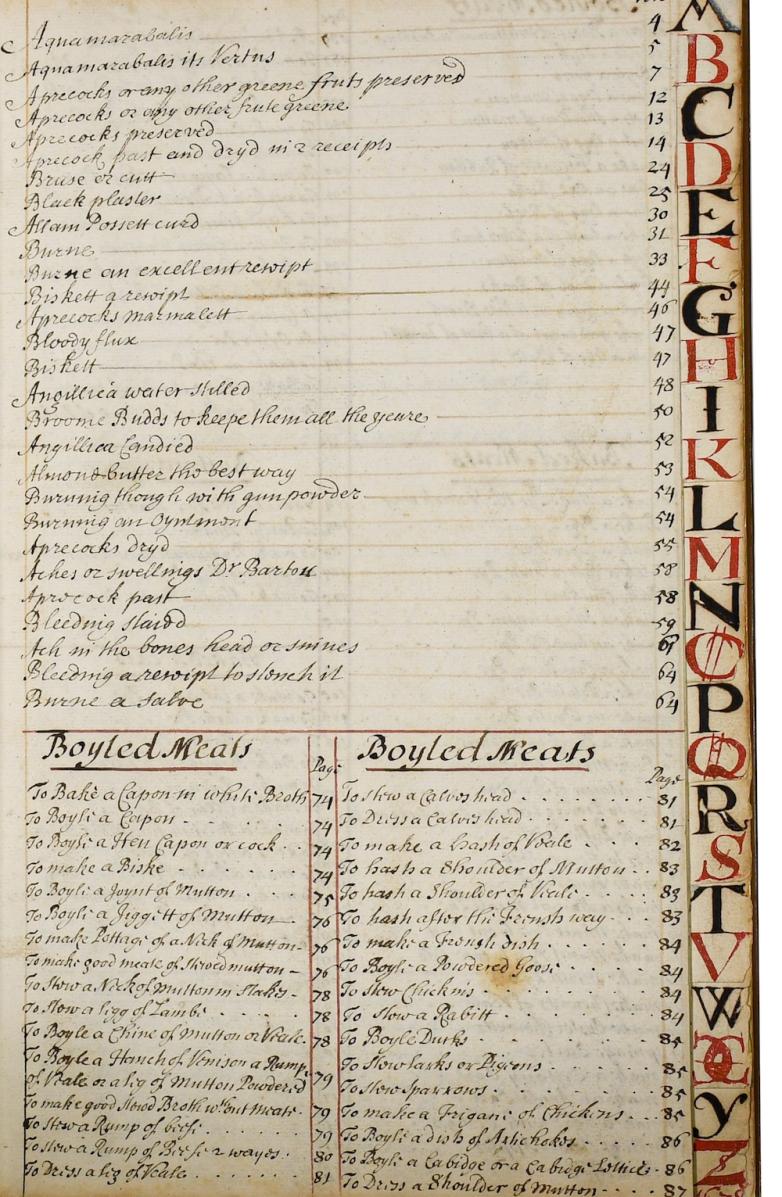 Aqua marabalis 4
Aqua marabalis its Vertus 5
Aprecocks or any other greene fruts preserved 7
Aprecocks or any other frute greene 12
Aprecocks preserved 13
Aprecock past and dryd in 2 receipts 14
Bruse or cutt 24
Black plaster 25
Allam Possett curd 30
Burne 31
Burne an excellent reseipt 33
Biskett a reseipt 44
Aprecocks marmalett 46
Bloody flux 47
Biskett 47
Angillica water stilled 48
Broome Budds to keepe them all the yeare 50
Angillica Candied 52
Almond butter the best way 53
Burning though with gunpowder 54
Burning an Oyntment 54
Aprecocks dryd 55
Aches or swellings Dr Barton 58
Aprocock past 58
Bleeding 59
Ach in the bones head or sinnes
Bleeding a reseipt to stench it 64
Burne a salve 64
A
B
C
D
E
F
G
H
I
K
L
M
N
O
P
Q
R
S
T
V
W
Y
Z
Boyled Meats
Page
To Bake a Capon in white Broth 74
To Boyle a Capon 74
To Boyle a Hen Capon or cock 74
To make a Biske 74
To Boyle a Joynt of Mutton 75
To Boyle a Jiggett of Mutton 76
To make Pottage of a Nick of Mutton 76
To make good meate of stewed mutton 76
To Stew a Nick of Mutton in Stakes 78
To Stew a ligg of Lambe 78
To Boyle a Chine of Mutton or Veale 78
To Boyle a Hanch of Venison a Rump
of Veale or a lig of Mutton Powdered 79
To make good stewd Broth wthout meate 79
To stew a Rump of beefe 79
To stew a Rump of Beefe 2 wayes 80
To Dress a leg of Veale 81
Boyled Meats
Page
To stew a Calves head 81
To Dress a Calves head 81
To make a hash of Veale 82
To hash a Shoulder of Mutton 83
To hash a Shoulder of Veale 83
To hash after the French way 83
To make a French dish 84
To Boyle a Powdered Goose 84
To stew Chickins 84
To stew a Rabitt 84
To Boyle Ducks 85
To Stew larks or Pigeons 85
To Stew Sparrows 85
To make a Frigane of Chickins 85
To Boyle a dish of Artichokes 86
To Boyle a Cabidge or a Cabidge Lettice 86
To Dress a Shoulder of Mutton 87